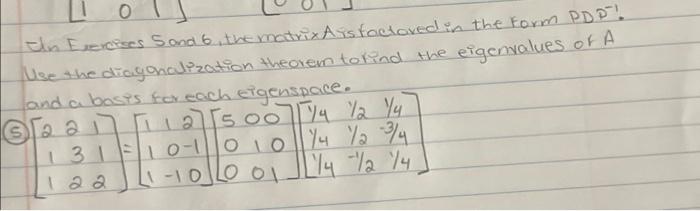 [1 0 1] [0 0 1]
In Exercises 5 and 6, the matrix A is factored in the form PDP⁻¹.
Use the diagonalization theorem to find the eigenvalues of A
and a basis for each eigenspace.
⑤ [2 2 1] = [1 1 2] [5 0 0] [1/4 1/2 1/4]
[1 3 1] [1 0 -1] [0 1 0] [1/4 1/2 -3/4]
[1 2 2] [1 -1 0] [0 0 1] [1/4 -1/2 1/4]